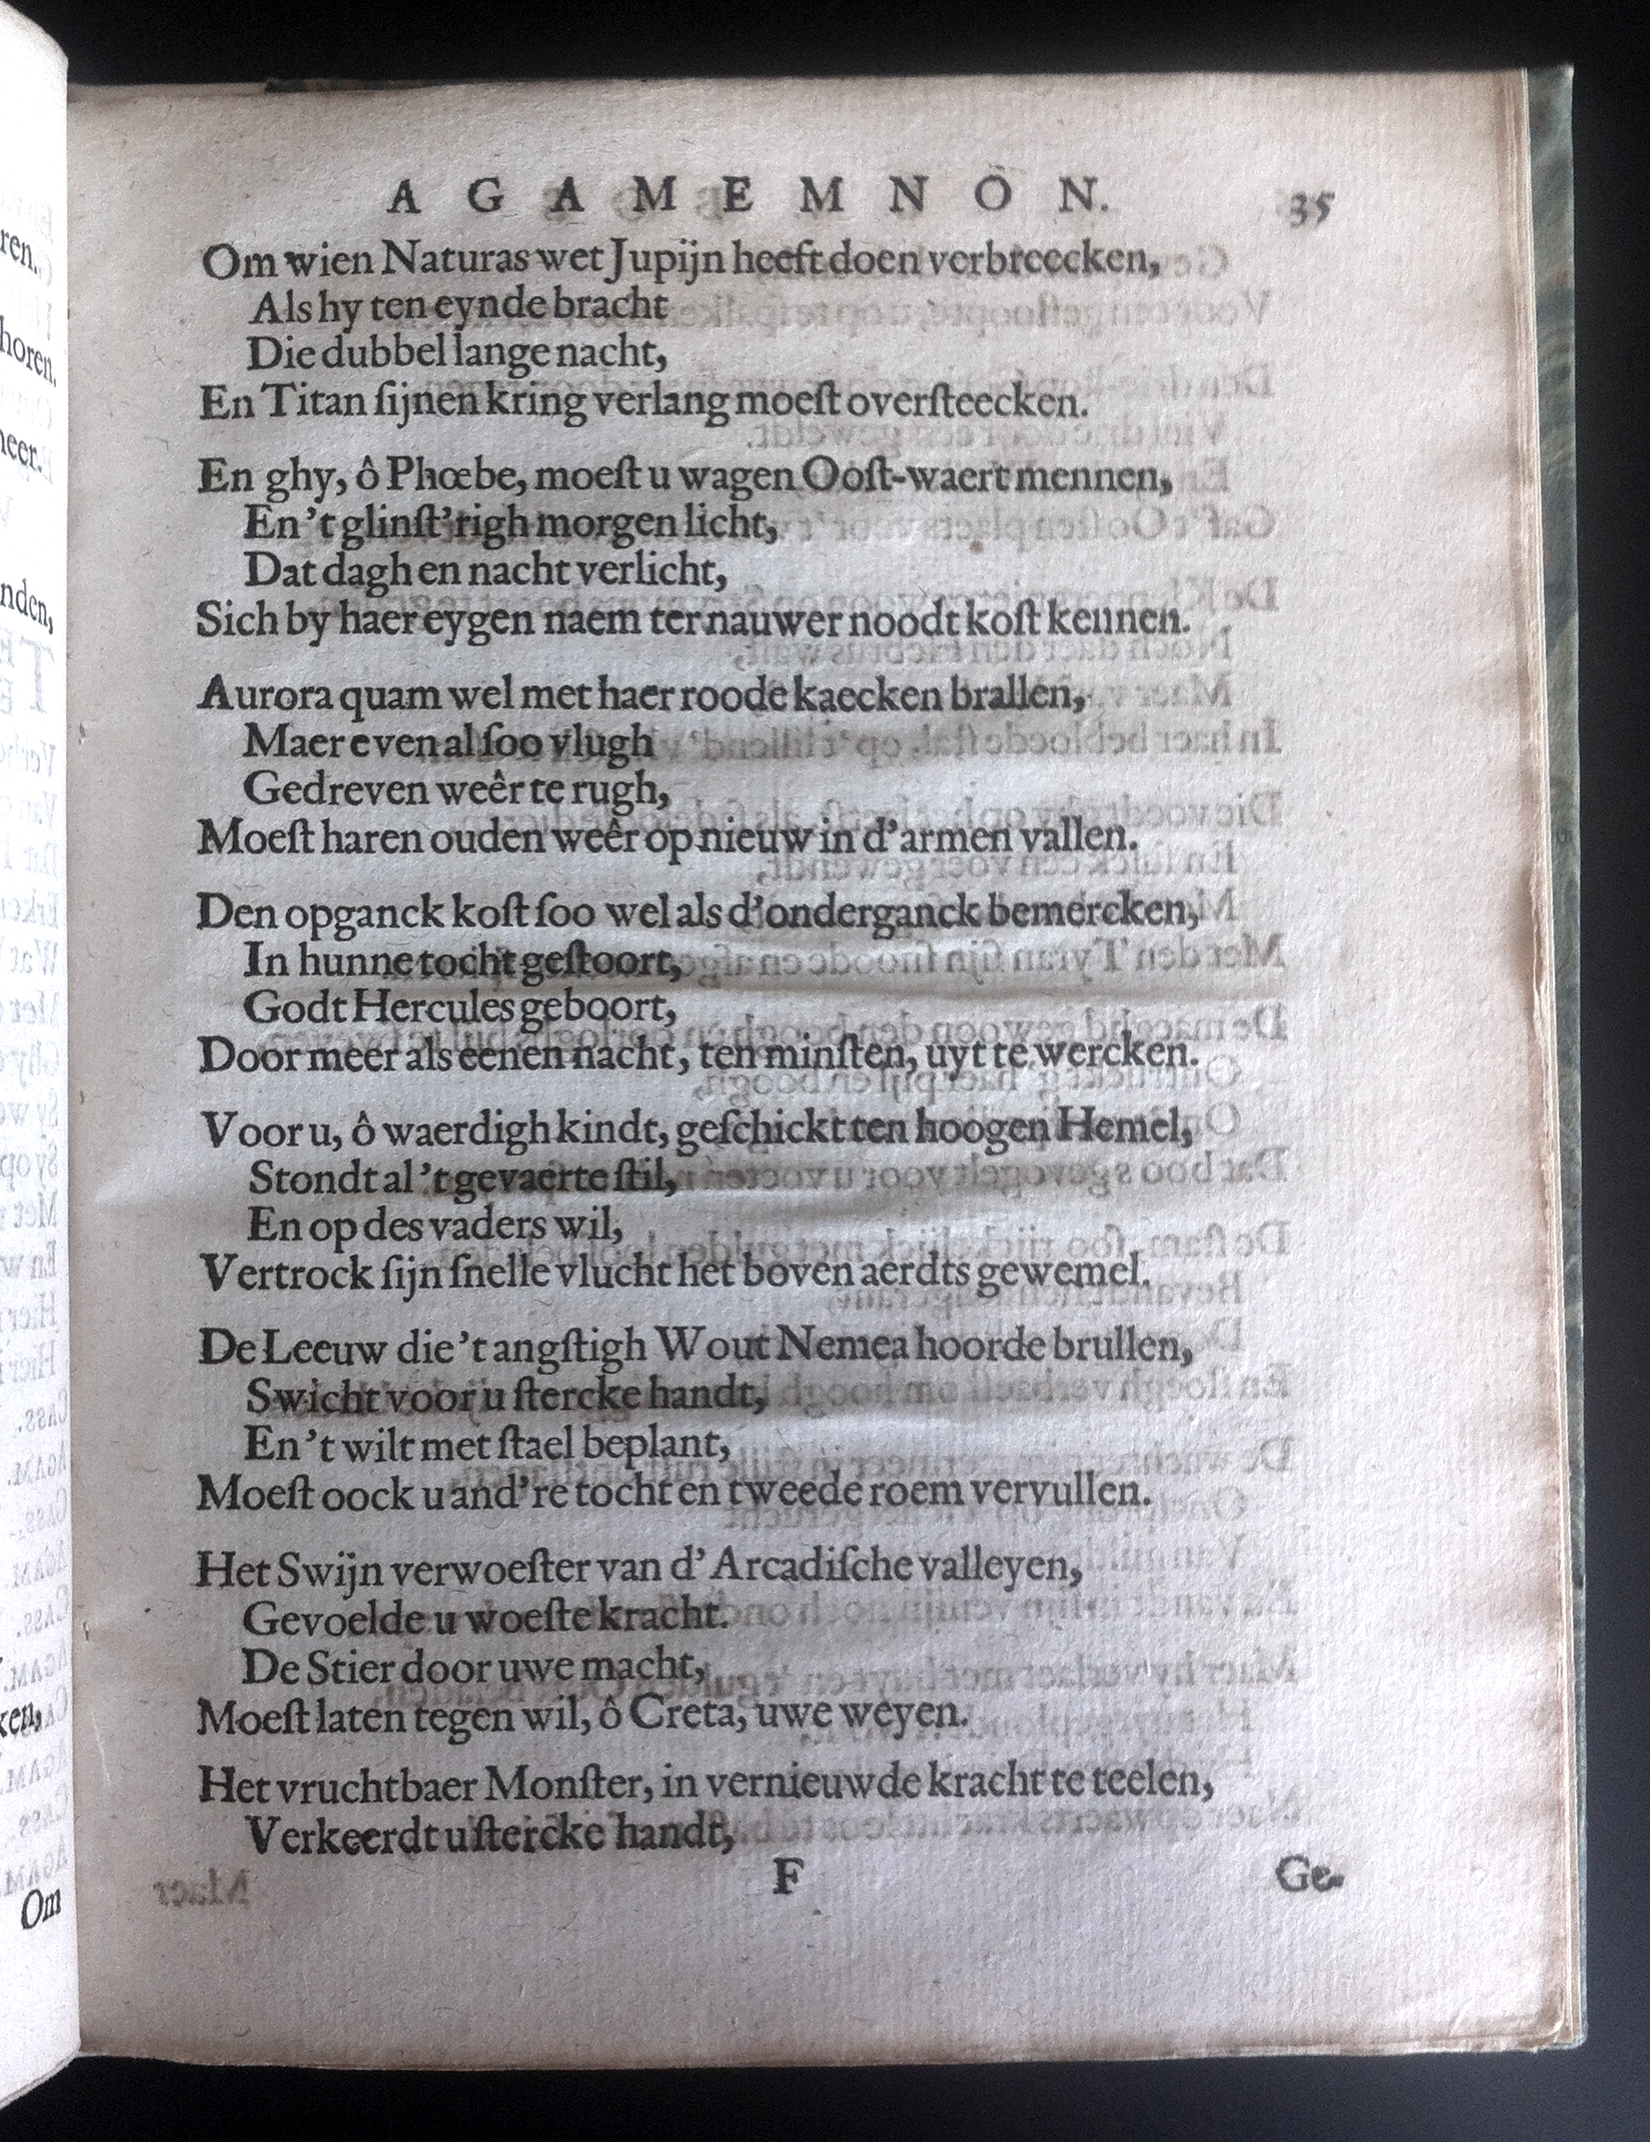 AGAMEMNON. 35
Om wien Naturas wet Jupijn heeft doen verbreecken,
Als hy ten eynde bracht
Die dubbel lange nacht,
En Titan ſijnen kring verlang moeſt overſteecken.
En ghy, ô Phœbe, moeſt u wagen Ooſt-waert mennen,
En 't glinſt'righ morgen licht,
Dat dagh en nacht verlicht,
Sich by haer eygen naem ter nauwer noodt koſt kennen.
Aurora quam wel met haer roode kaecken brallen,
Maer even al ſoo vlugh
Gedreven weêr te rugh,
Moeſt haren ouden weêr op nieuw in d'armen vallen.
Den opganck koſt ſoo wel als d'onderganck bemercken,
In hunne tocht geſtoort,
Godt Hercules geboort,
Door meer als eenen nacht, ten minſten, uyt te wercken.
Voor u, ô waerdigh kindt, geſchickt ten hoogen Hemel,
Stondt al 't gevaerte ſtil,
En op des vaders wil,
Vertrock ſijn ſnelle vlucht het boven aerdts gewemel.
De Leeuw die 't angſtigh Wout Nemea hoorde brullen,
Swicht voor u ſtercke handt,
En 't wilt met ſtael beplant,
Moeſt oock u and're tocht en tweede roem vervullen.
Het Swijn verwoeſter van d' Arcadiſche valleyen,
Gevoelde u woeſte kracht.
De Stier door uwe macht,
Moeſt laten tegen wil, ô Creta, uwe weyen.
Het vruchtbaer Monſter, in vernieuwde kracht te teelen,
Verkeerdt u ſtercke handt,
F Ge-
ren.
horen.
neer.
nden,
ken,
Om